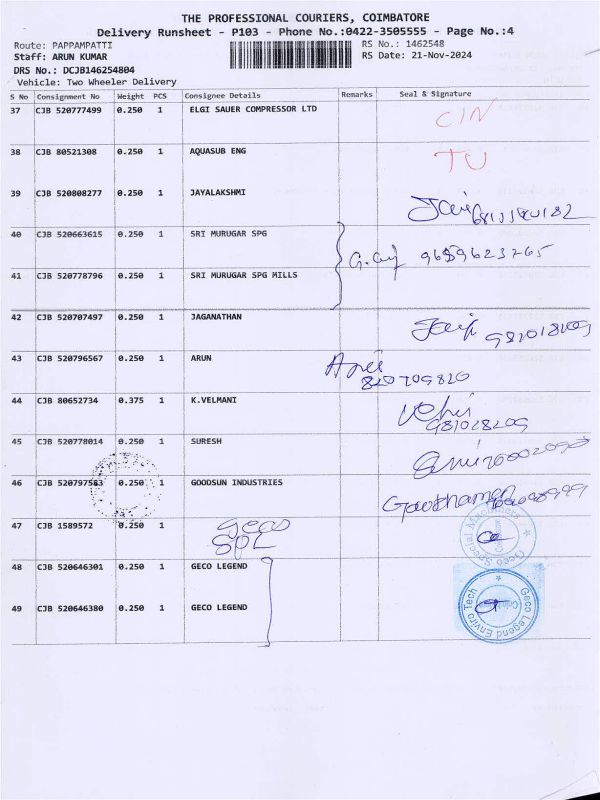 THE PROFESSIONAL COURIERS, COIMBATORE
Delivery Runsheet - P103 - Phone No.:0422-3505555 - Page No.:4
Route: PAPPAMPATTI RS No.: 1462548
Staff: ARUN KUMAR RS Date: 21-Nov-2024
DRS No.: DCJB146254804
Vehicle: Two Wheeler Delivery
S No Consignment No Weight PCS Consignee Details Remarks Seal & Signature
37 CJB 520777499 0.250 1 ELGI SAUER COMPRESSOR LTD CIN
38 CJB 80521308 0.250 1 AQUASUB ENG TU
39 CJB 520808277 0.250 1 JAYALAKSHMI
40 CJB 520663615 0.250 1 SRI MURUGAR SPG
9659623765
41 CJB 520778796 0.250 1 SRI MURUGAR SPG MILLS
42 CJB 520707497 0.250 1 JAGANATHAN
43 CJB 520796567 0.250 1 ARUN
44 CJB 80652734 0.375 1 K.VELMANI
45 CJB 520778014 0.250 1 SURESH
46 CJB 520797583 0.250 1 GOODSUN INDUSTRIES
47 CJB 1589572 0.250 1 SPL
Geco Special Machinery
48 CJB 520646301 0.250 1 GECO LEGEND
49 CJB 520646380 0.250 1 GECO LEGEND
Geco Legend Enviro Tech